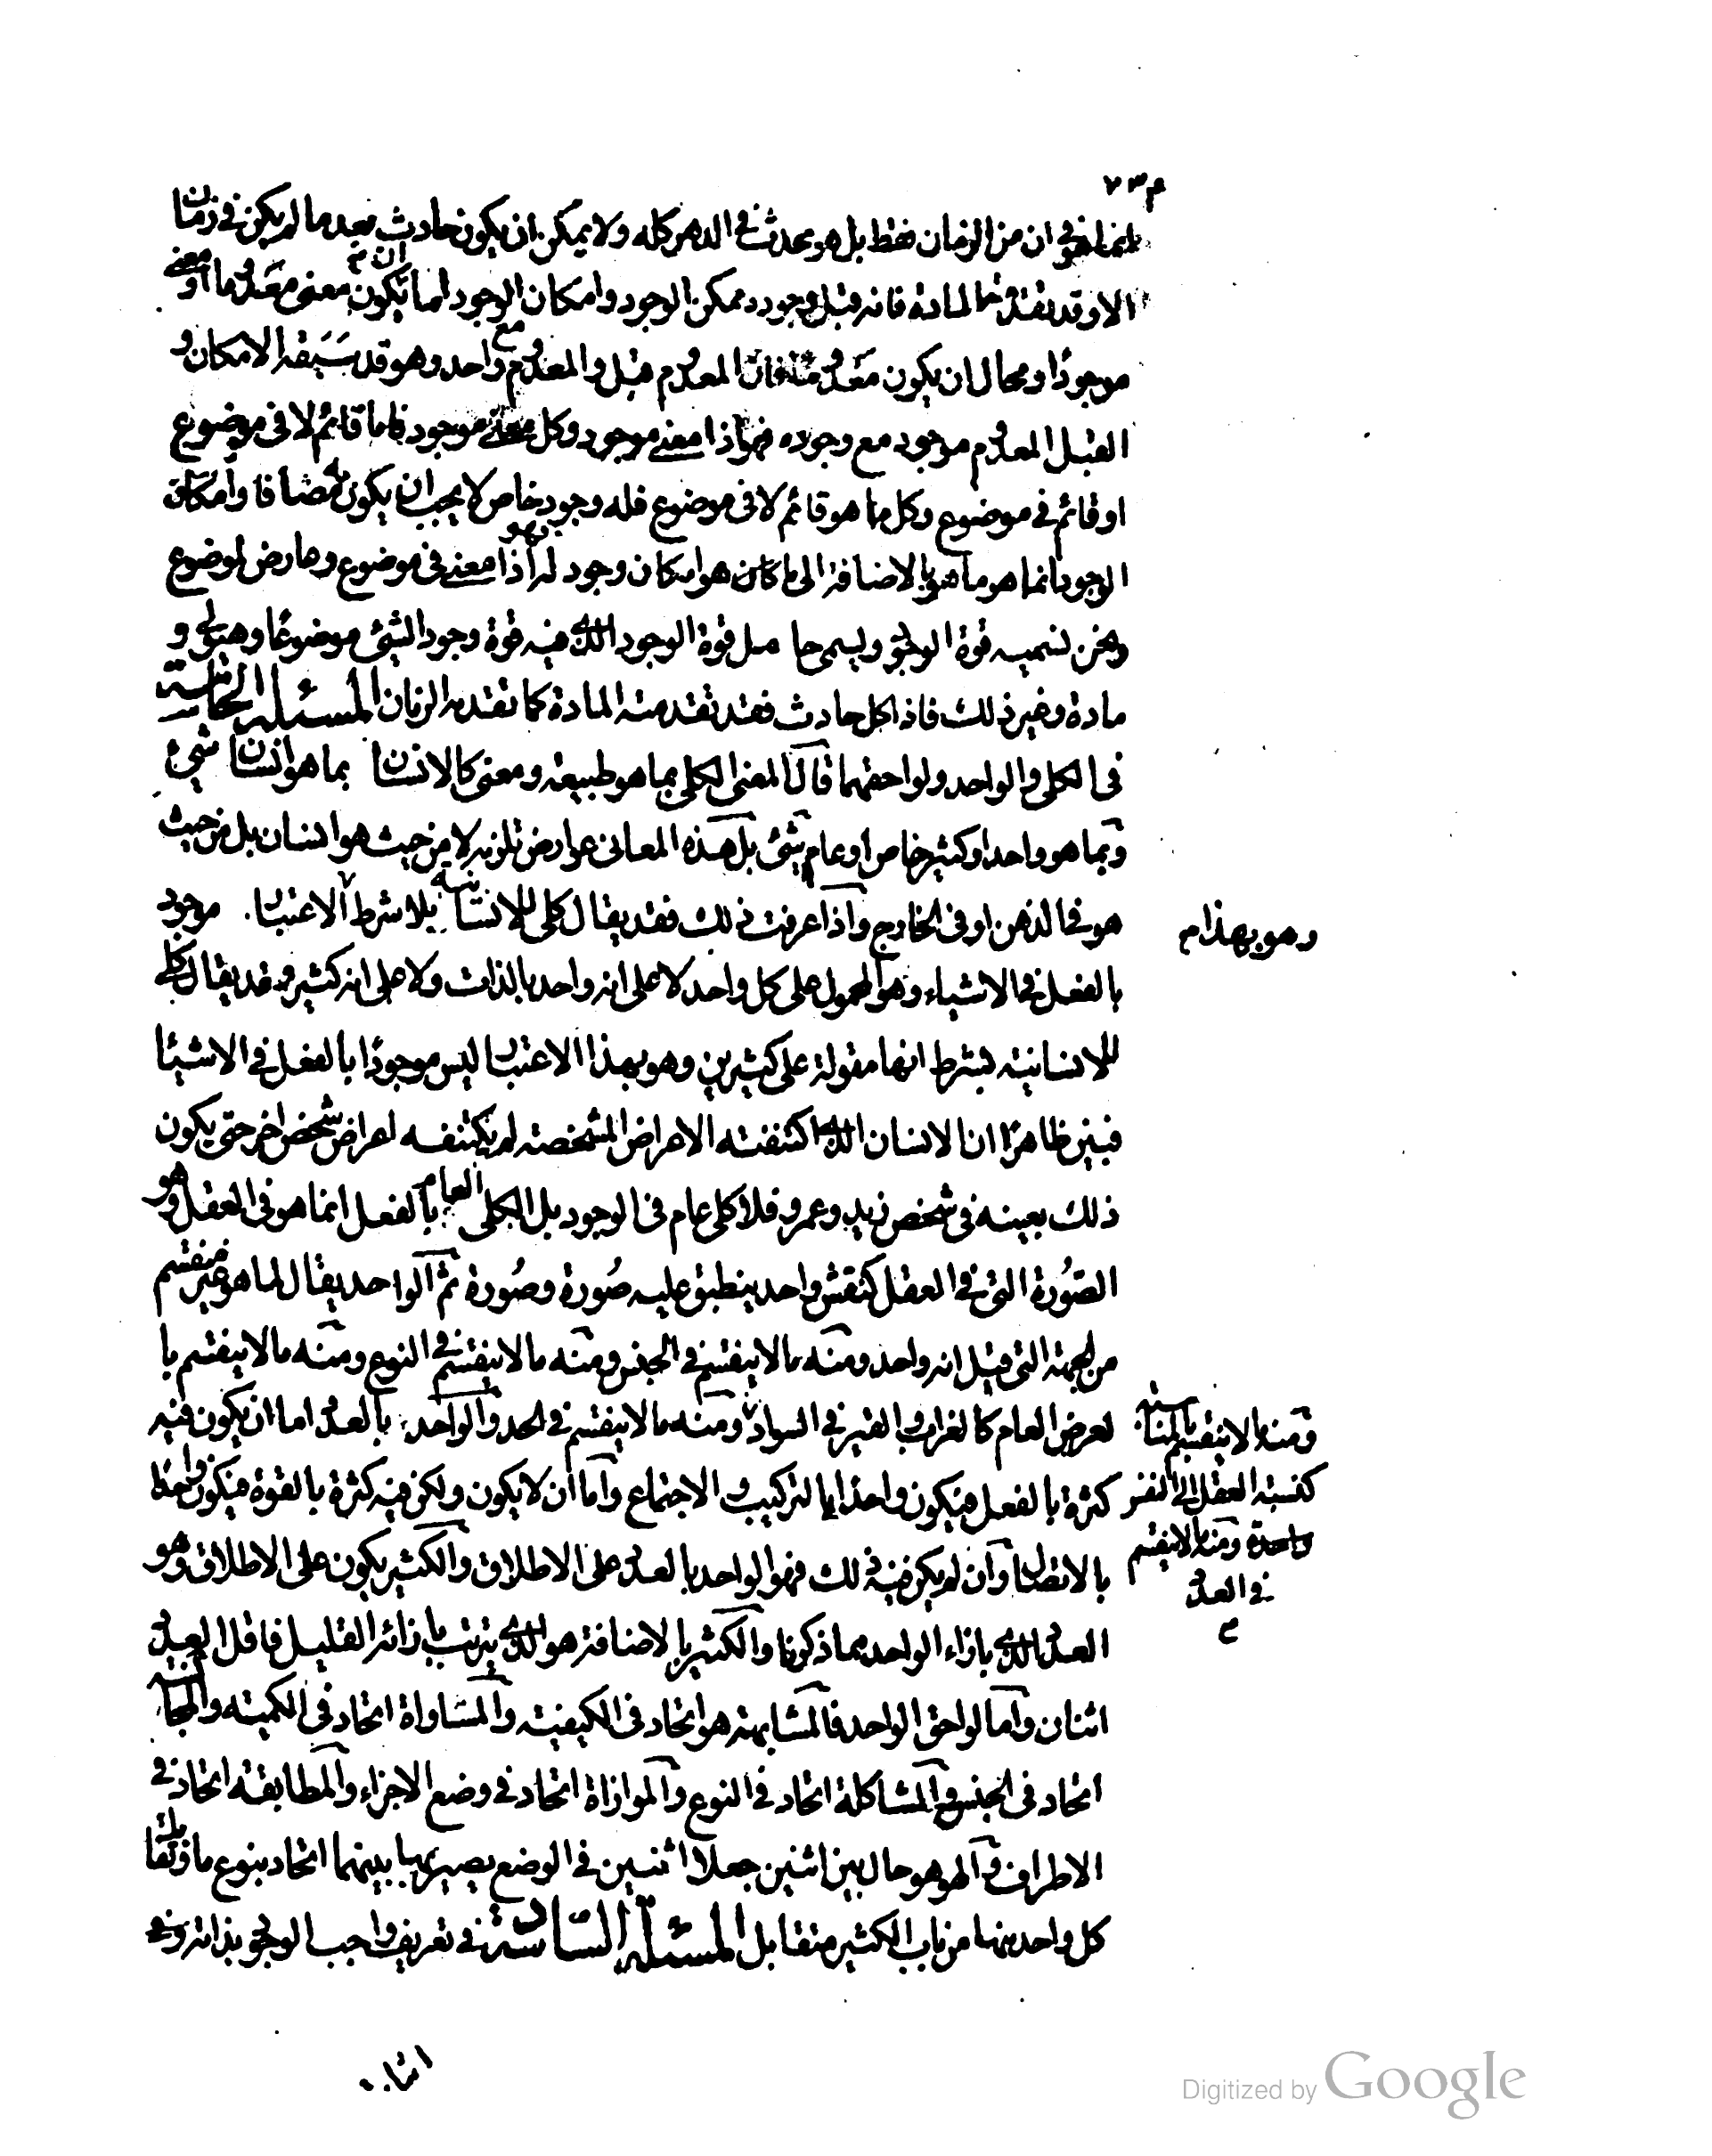 انما هو في ان من الزمان فقط بل هو محدث في الدهر كله ولا يمكن ان يكون حادث بعد ما لم يكن في زمان
الا وقد تقدمته المادة فانه قبل وجوده ممكن الوجود وامكان الوجود اما ان يكون معنى معدوما او معنى
موجودا ومحال ان يكون معدوما فان المعدوم قبل والمعدوم مع واحد وهو قد سبقه الامكان و
القبل المعدوم موجود مع وجوده فهو اذا معنى موجود وكل معنى موجود فاما قائم لا في موضوع
او قائم في موضوع وكل ما هو قائم لا في موضوع فله وجود خاص لا يجب ان يكون به مضافا وامكان
الوجود انما هو ما هو بالاضافة الى ما كان هو امكان وجود له فهو اذا معنى في موضوع وعارض لموضوع
ونحن نسميه قوة الوجود ويسمى حامل قوة الوجود الذي فيه قوة وجود الشئ موضوعا وهيولى و
مادة وغير ذلك فاذا كل حادث فقد تقدمته المادة كما تقدمه الزمان المسئلة الخامسة
في الكلي والواحد ولواحقهما قال المعنى الكلي بما هو طبيعة ومعنى كالانسان بما هو انسان شئ
وبما هو واحد او كثير خاص او عام شئ بل هذه المعاني عوارض تلزمه لا من حيث هو انسان بل من حيث
هو في الذهن او في الخارج واذا عرفت ذلك فقد يقال كلي للانسانية بلا شرط وهو بهذا الاعتبار موجود
بالفعل في الاشياء وهو المحمول على كل واحد لا على انه واحد بالذات ولا على انه كثير وقد يقال كلي
للانسانية بشرط انها مقولة على كثيرين وهو بهذا الاعتبار ليس موجودا بالفعل في الاشيئا
فبين ظاهرا ان الانسان الذي اكتنفته الاعراض المشخصة لم يكتنفه اعراض شخص اخر حتى يكون
ذلك بعينه في شخص زيد وعمرو فلا كلي عام في الوجود بل الكلي العام بالفعل انما هو في العقل وهو
الصورة التي في العقل كنقش واحد ينطبق عليه صورة وصورة ثم الواحد يقال لما هو غير منقسم
من الجهة التي قيل انه واحد ومنه ما لا ينقسم في الجنس ومنه ما لا ينقسم في النوع ومنه ما لا ينقسم با
لعرض العام كالغراب والقير في السواد ومنه ما لا ينقسم بالمناسبة كنسبة العقل الى النفس ومنه ما لا ينقسم في العدد ومنه ما لا ينقسم في الحد والواحد بالعدد اما ان يكون فيه
كثرة بالفعل فيكون واحدا بالتركيب والاجتماع واما ان لا يكون ولكن فيه كثرة بالقوة فيكون واحدا
بالاتصال وان لم يكن فيه ذلك فهو الواحد بالعدد على الاطلاق والكثير يكون على الاطلاق وهو
العدد الذي بازاء الواحد مما ذكرنا والكثير بالاضافة هو الذي يترتب بازائه القليل فاقل العدد
اثنان واما لواحق الواحد فالمشابهة هو اتحاد في الكيفية والمساواة اتحاد في الكمية والمجانسة
اتحاد في الجنس والمشاكلة اتحاد في النوع والموازاة اتحاد في وضع الاجزاء والمطابقة اتحاد في
الاطراف والهو هو حال بين اثنين جعلا اثنين في الوضع يصير بها بينهما اتحاد بنوع ما ويقابل
كل واحد منها من باب الكثير متقابل المسئلة السادسة في تعريف واجب الوجود بذاته وانه
Digitized by Google